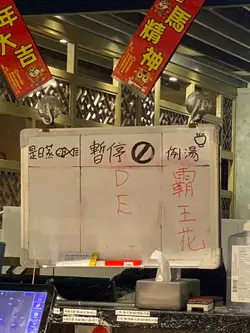 年大吉
馬精神
是日蒸
暫停
例湯
D
E
霸
王
花